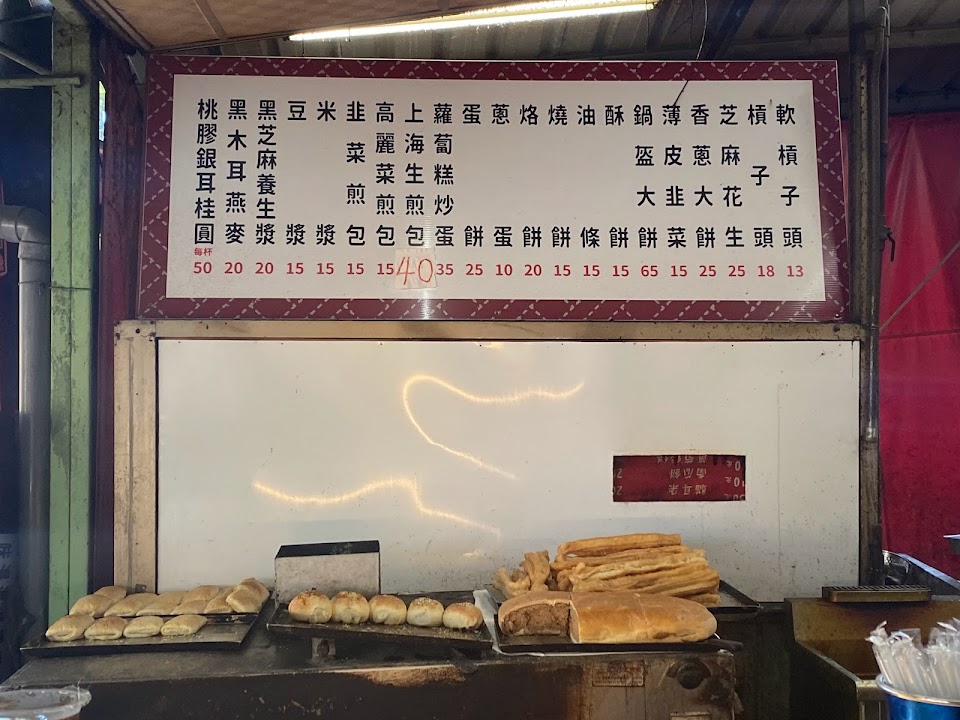 軟槓子頭 13
槓子頭 18
芝麻花生 25
香蔥大餅 25
薄皮韭菜 15
鍋盔大餅 65
酥餅 15
油條 15
燒餅 15
烙餅 20
蔥蛋 10
蛋餅 25
蘿蔔糕炒蛋 35
上海生煎包 40
高麗菜煎包 15
韭菜煎包 15
米漿 15
豆漿 15
黑芝麻養生漿 20
黑木耳燕麥 20
桃膠銀耳桂圓 每杯 50